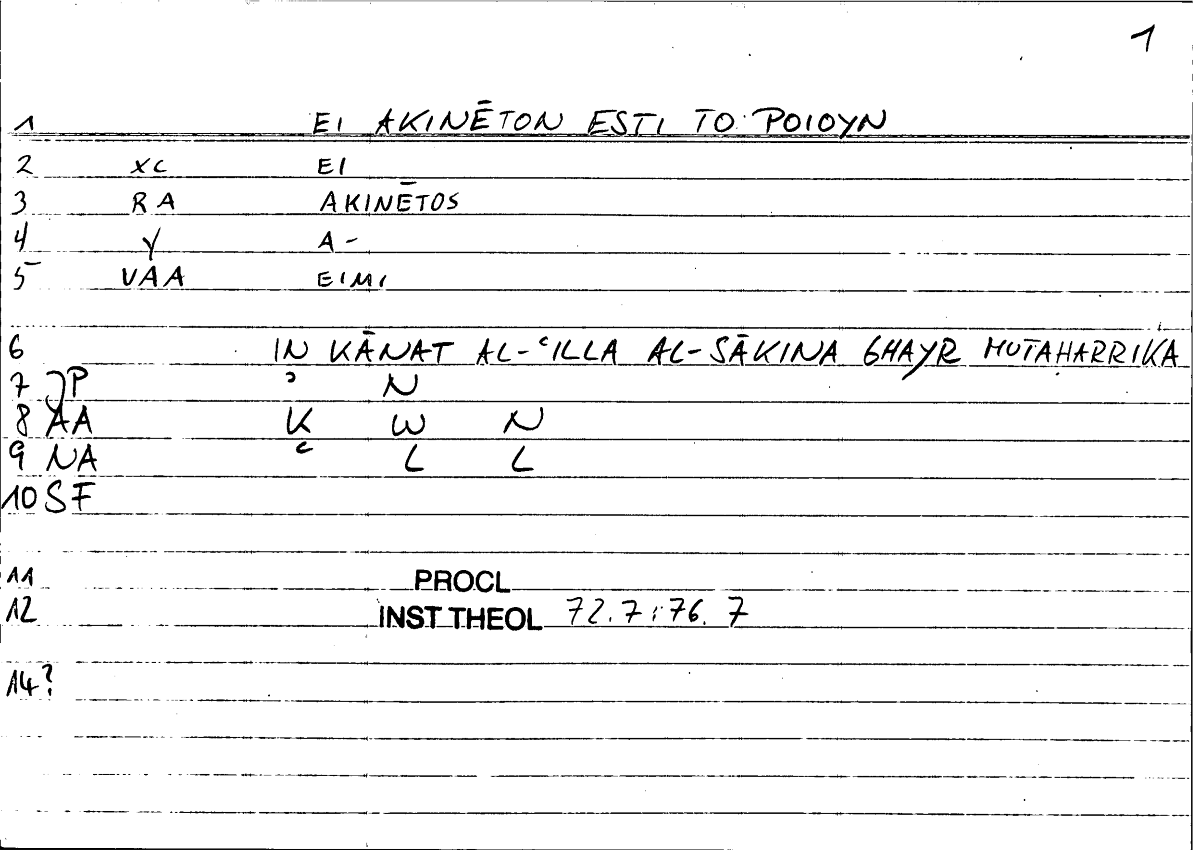 1
1 EI AKINĒTON ESTI TO POIOYN
2 XC EI
3 RA AKINĒTOS
4 Y A-
5 VAA EIMI
6 IN KĀNAT AL-ʿILLA AL-SĀKINA GHAYR MUTAḤARRIKA
7 JP ʾ N
8 AA K W N
9 NA ʿ L L
10 SF
11 PROCL
12 INST THEOL 72.7:76.7
14?